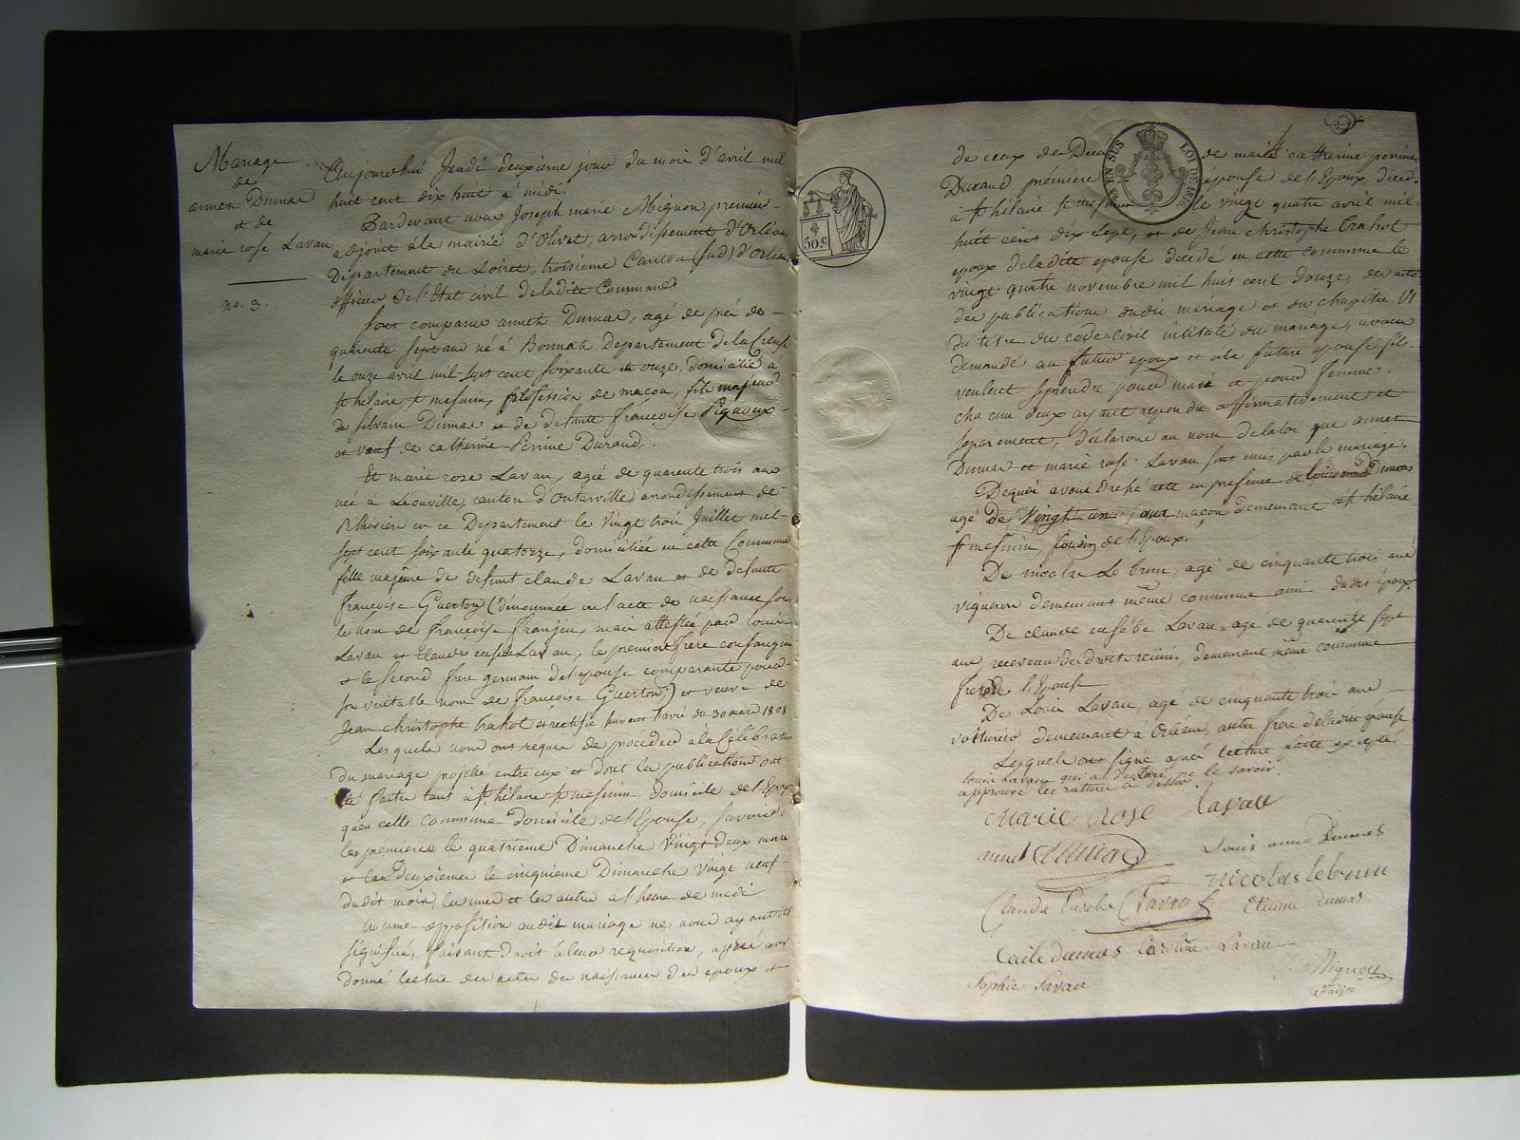 Mariage
de
annet Dumas
et de
marie rose Lavau
no. 3
Aujourd'hui Jeudi deuxieme jour du mois d'avril mil
huit cent dix huit a midi.
Pardevant nous Joseph marie Mignon premier
adjoint à la mairie d'Olivet, arrondissement d'Orléans
Département du Loiret, troisieme Canton (sud) d'Orléans
officier de l'Etat civil de ladite Commune
sont comparus annet Dumas, agé de près de
quarante sept ans né à Bonnat Departement de la Creuse
le onze avril mil sept cent soixante et onze, domicilié a
st hilaire st mesmin, profession de macon, fils majeur
de silvain Dumas et de defunte françoise
et veuf de catherine Perrine Durand.
Et marie rose Lavau, agé de quarante trois ans
née a Léouville, canton d'Outarville arrondissement de
en ce Departement le vingt trois Juillet mil
sept cent soixante quatorze, domiciliée en cette Commune
fille majeure de defunt claude Lavau et de defunte
françoise Guerton (dénommée en l'acte de naissance sous
le nom de françoise franjeu, mais attestée par louis
Lavau et Claude eusebe Lavau, le premier frere consanguin
et le second frere germain de l'epouse comparante pour
son veritable nom de francoise Guerton) et veuve de
Jean christophe trahot du 30 mars 1808
Lesquels nous ont requis de proceder à la Célébration
du mariage projetté entre eux et dont les publications ont
été faites tant à st hilaire st mesmin domicile de l'Epoux
qu'en cette commune domicile de l'Epouse, savoir
les premieres le quatrième Dimanche vingt deux mars
et les deuxiemes le cinquieme Dimanche vingt neuf
dudit mois, les unes et les autres a l'heure de midi
Aucune opposition audit mariage ne nous ayant été
signifiée, faisant droit à leur requisition, apres avoir
donné lecture des actes de naissance des epoux et
de ceux de Deces de marie catherine perrine
Durand premiere epouse de l'Epoux deced.
à st hilaire st mesmin le vingt quatre avril mil
huit cens dix sept, et de Jean christophe trahot
epoux de ladite epouse décédé en cette commune le
vingt quatre novembre mil huit cent douze, des actes
des publications dudit mariage et du chapitre VI
du titre du code civil intitulé du mariage, avons
demandé au futur epoux et a la future epouse s'ils
veulent se prendre pour mari et pour femme.
chacun deux ayant repondu affirmativement et
separement, déclarons au nom de la loi que annet
Dumas et marie rose Lavau sont unis par le mariage.
De quoi avons dressé acte en presence de louis Dumas
agé de vingt un ans macon demeurant à st hilaire
st mesmin cousin de l'Epoux.
De nicolas Le brun, agé de cinquante trois ans
vigneron demeurant même commune ami dudit époux.
De claude eusebe Lavau, age de quarante sept
ans receveur des droits réunis, demeurant même commune
frere de l'Epouse
De Louis Lavau, agé de cinquante trois ans
voiturier demeurant a Orléans, autre frere de ladite epouse
Lesquels ont signé après lecture faite excepté
louis Lavau qui a declaré ne le savoir.
approuvé les ratures ci dessus.
Marie Rose Lavau
annet Dumas
Louis Dumas
nicolas lebrun
Claude Eusebe Lavau
Etienne dumas
Cecile dumas
Sophie Lavau
Mignon
adjoint
EN SUS
LOI DE 1816
50 c